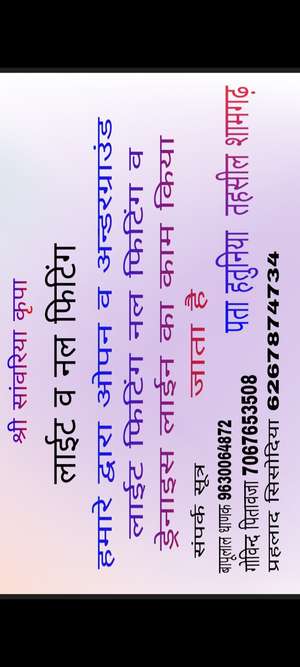 श्री सांवरिया कृपा
लाईट व नल फिटिंग
हमारे द्वारा ओपन व अन्डरग्राउंड
लाईट फिटिंग नल फिटिंग व
ड्रेनाइस लाईन का काम किया
जाता है
संपर्क सूत्र
पता हतुनिया तहसील शामगढ़
बापूलाल धाणक 9630064872
गोविन्द पितावजा 7067653508
प्रहलाद सिसोदिया 6267874734